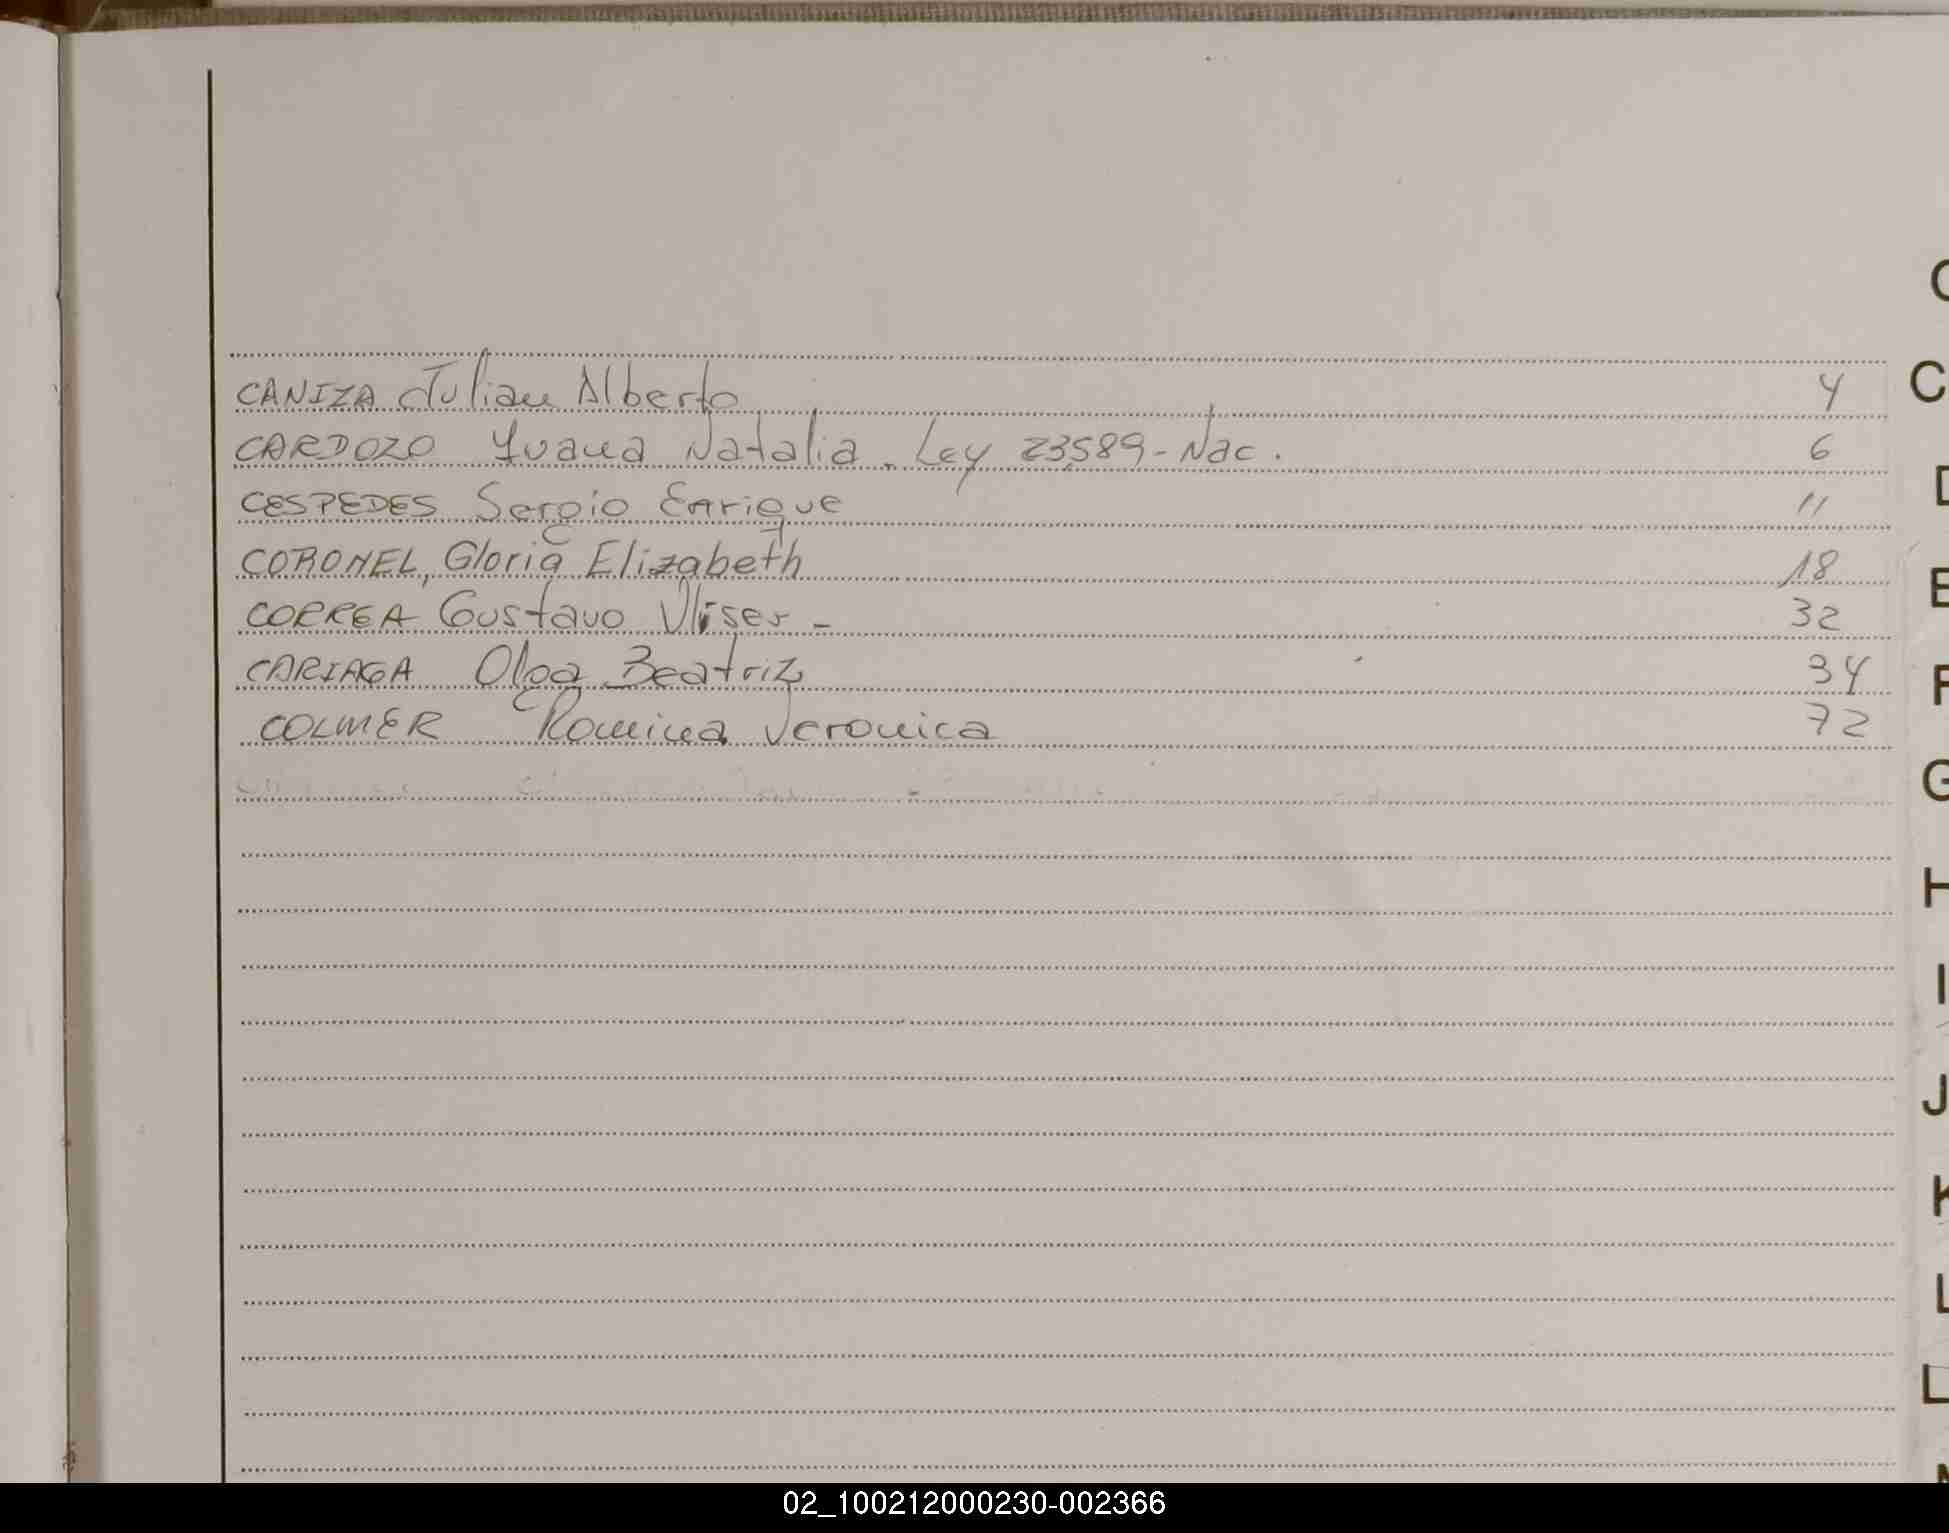 CANIZA Julian Alberto 4
CARDOZO Ivana Natalia. Ley 23589-Nac. 6
CESPEDES Sergio Enrique 11
CORONEL, Gloria Elizabeth 18
CORREA Gustavo Uliser - 32
CARIAGA Olga Beatriz 34
COLMER Romina Veronica 72
C
D
E
F
G
H
I
J
K
L
02_100212000230-002366